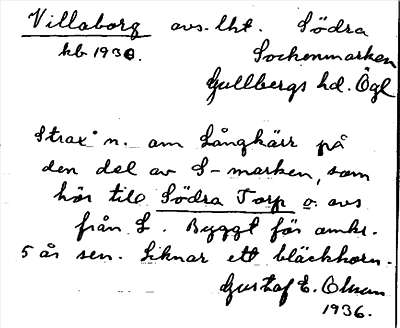 Villaborg avs. lht. Södra
kb 1930. Sockenmarken
Gullbergs hd. Ögl
Strax n. om Långkärr på
den del av S-marken, som
hör till Södra Torp o. avs
från S. Byggt för omkr.
5 år sen. Liknar ett bläckhorn.
Gustaf E. Olson
1936.